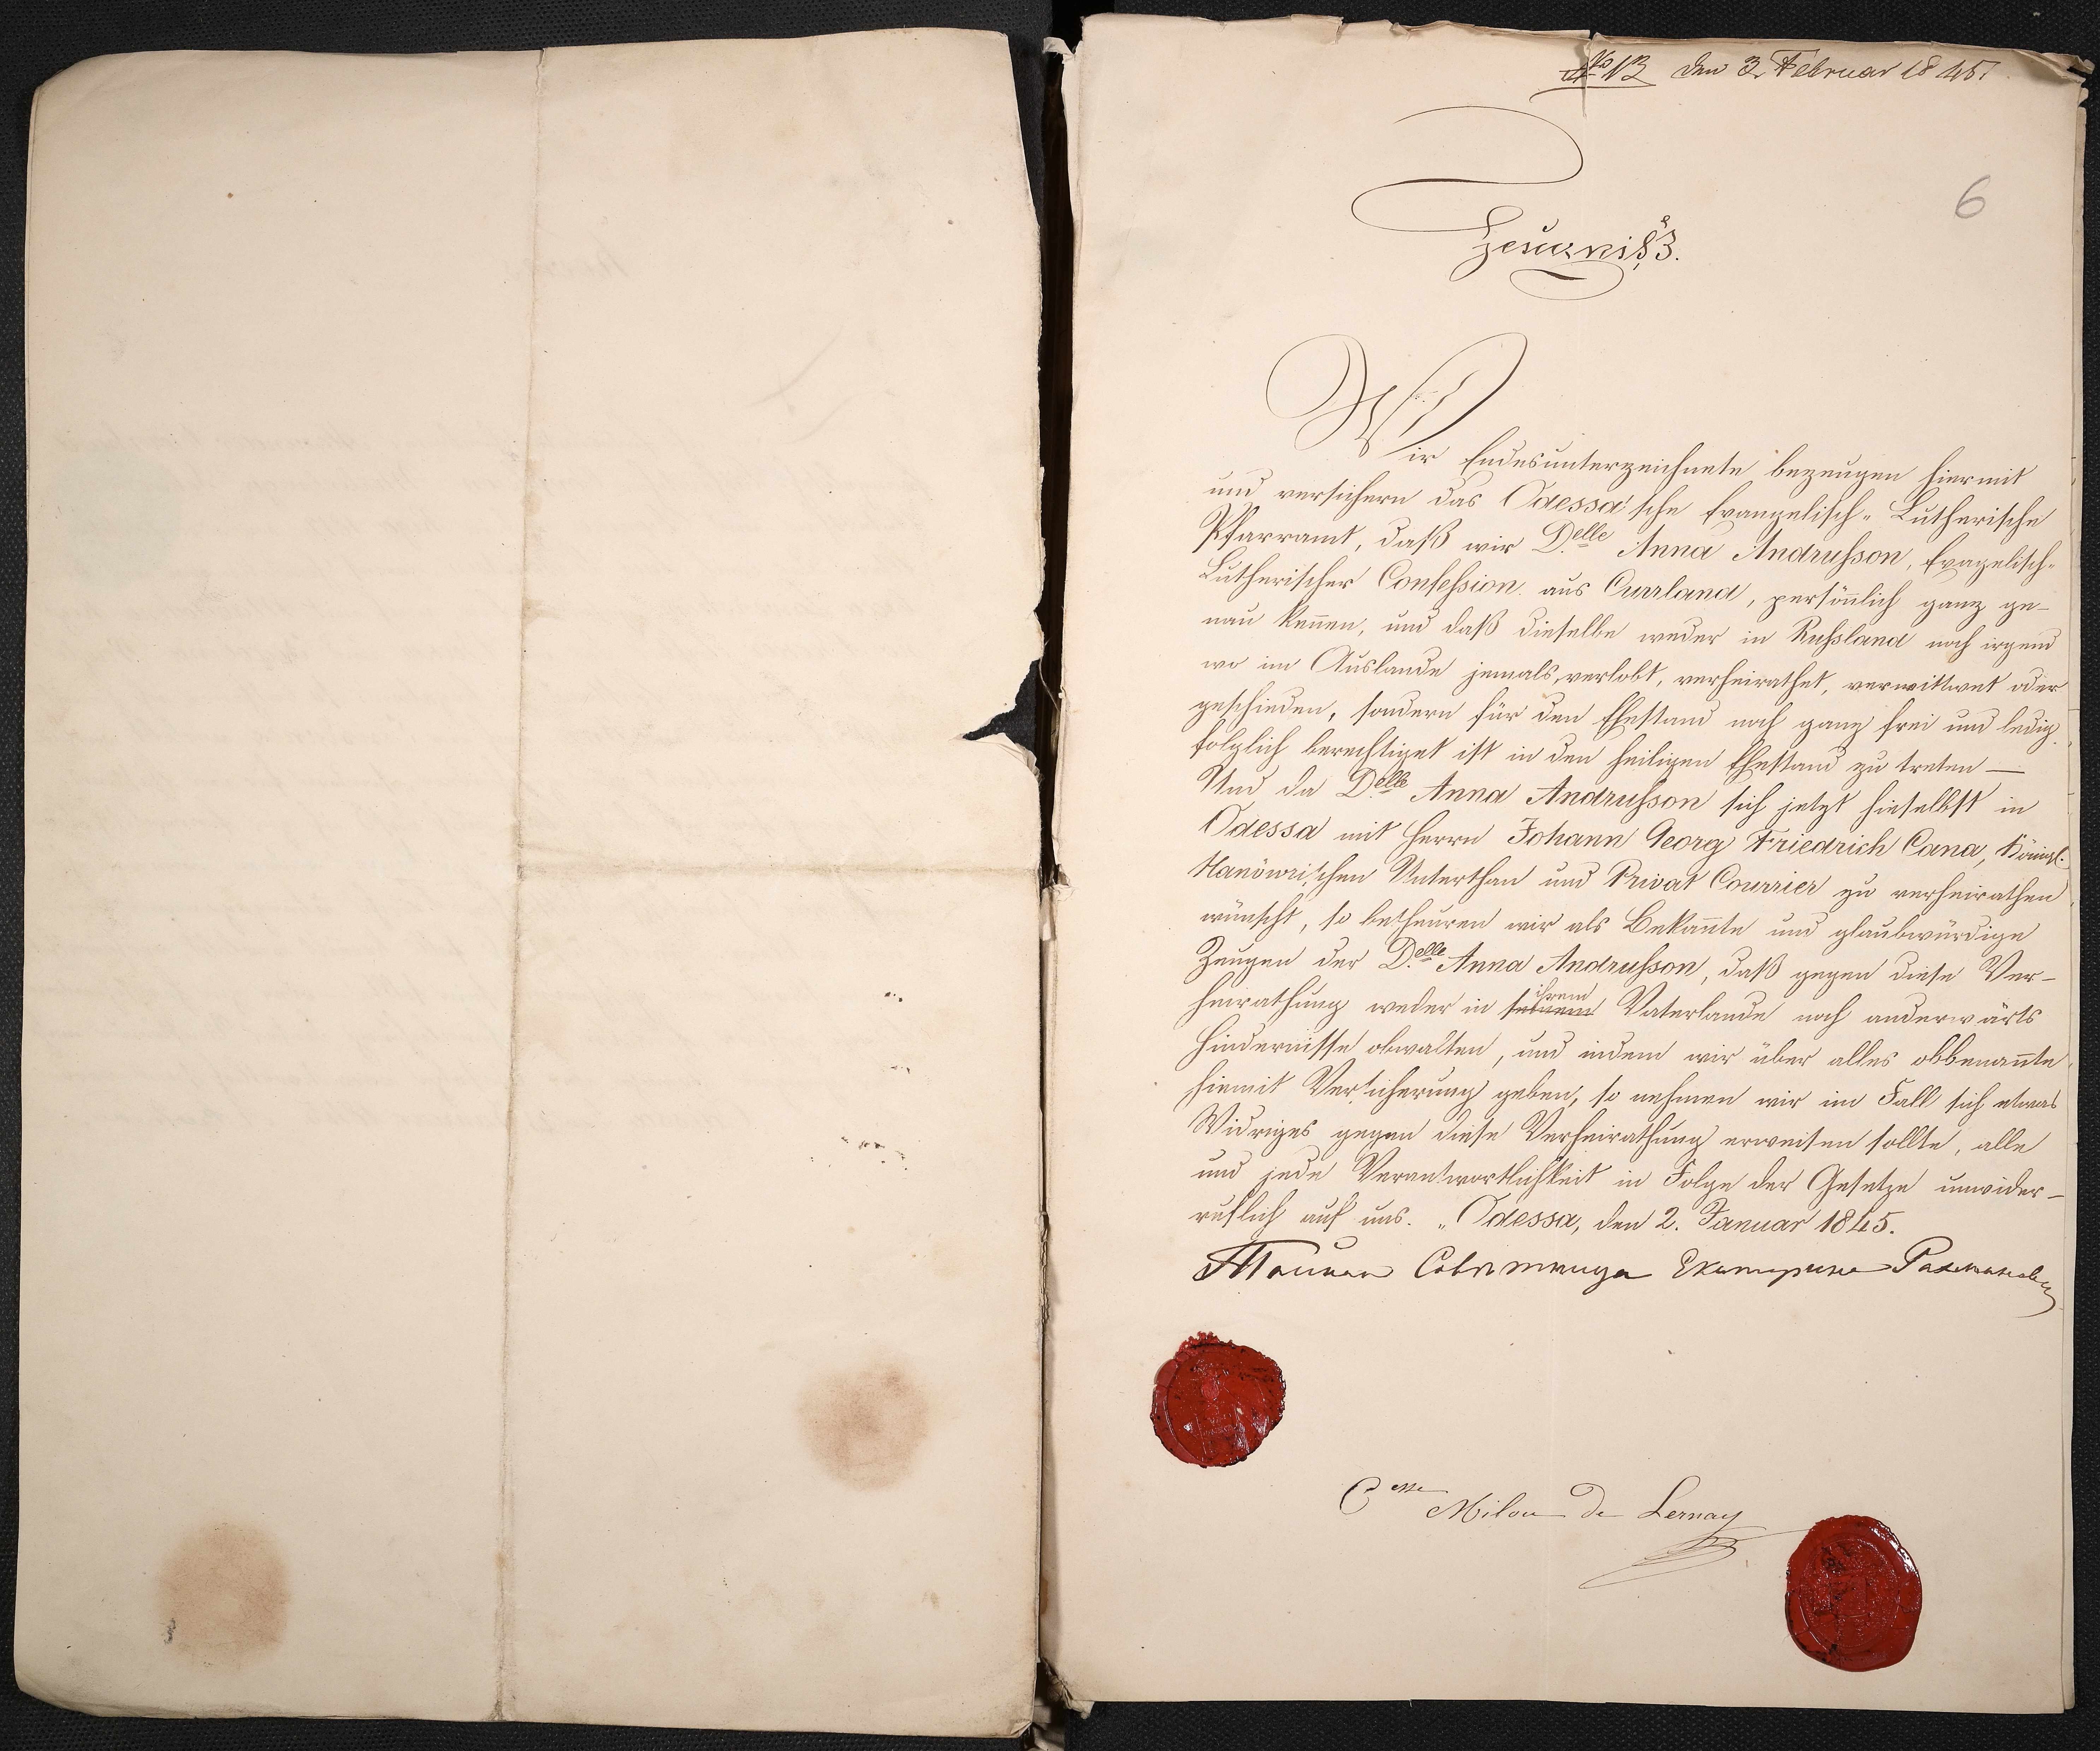 No 13 den 3. Februar 1845.
6
Zeugniß.
Wir Endesunterzeichnete bezeugen hiermit
und versichern das Odessa'sche Evangelisch-Lutherische
Pfarramt, daß wir Delle Anna Andrusson, Evagelisch-
Lutherischer Confession aus Currland, persönlich ganz ge-
nau keñen, und daß dieselbe weder in Russland noch irgend
wo im Auslande jemals, verlobt, verheirathet, verwittwet oder
geschieden, sondern für den Ehestand noch ganz frei und ledig
folglich berechtiget ist in den heiligen Ehestand zu treten —
Und da Delle Anna Andrusson sich jetzt hieselbst in
Odessa mit Herrn Johann Georg Friedrich Cana, Königl.
Hanövrischen Unterthan und Privat Courrier zu verheirathen
wünscht, so betheuren wir als Bekañte und glaubwürdige
Zeugen der Delle Anna Andrusson, daß gegen diese Ver-
heirathung weder in seinem ihrem Vaterlande noch anderwärts
Hindernisse obwalten, und indem wir über alles obbenañte
hiemit Versicherung geben, so nehmen wir im Fall sich etwas
Widriges gegen diese Verheirathung erweisen sollte, alle
und jede Verantwortlichkeit in Folge der Gesetze unwider-
ruflich auf uns. Odessa, den 2. Januar 1845.
Екатерина
Csse Milon De Lernay